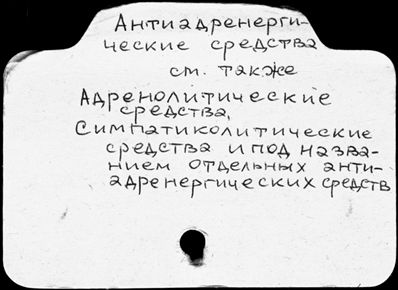 Антиадренерги-
ческие средства
см. также
Адренолитические
средства,
Симпатиколитические
средства и под назва-
нием отдельных анти-
адренергических средств